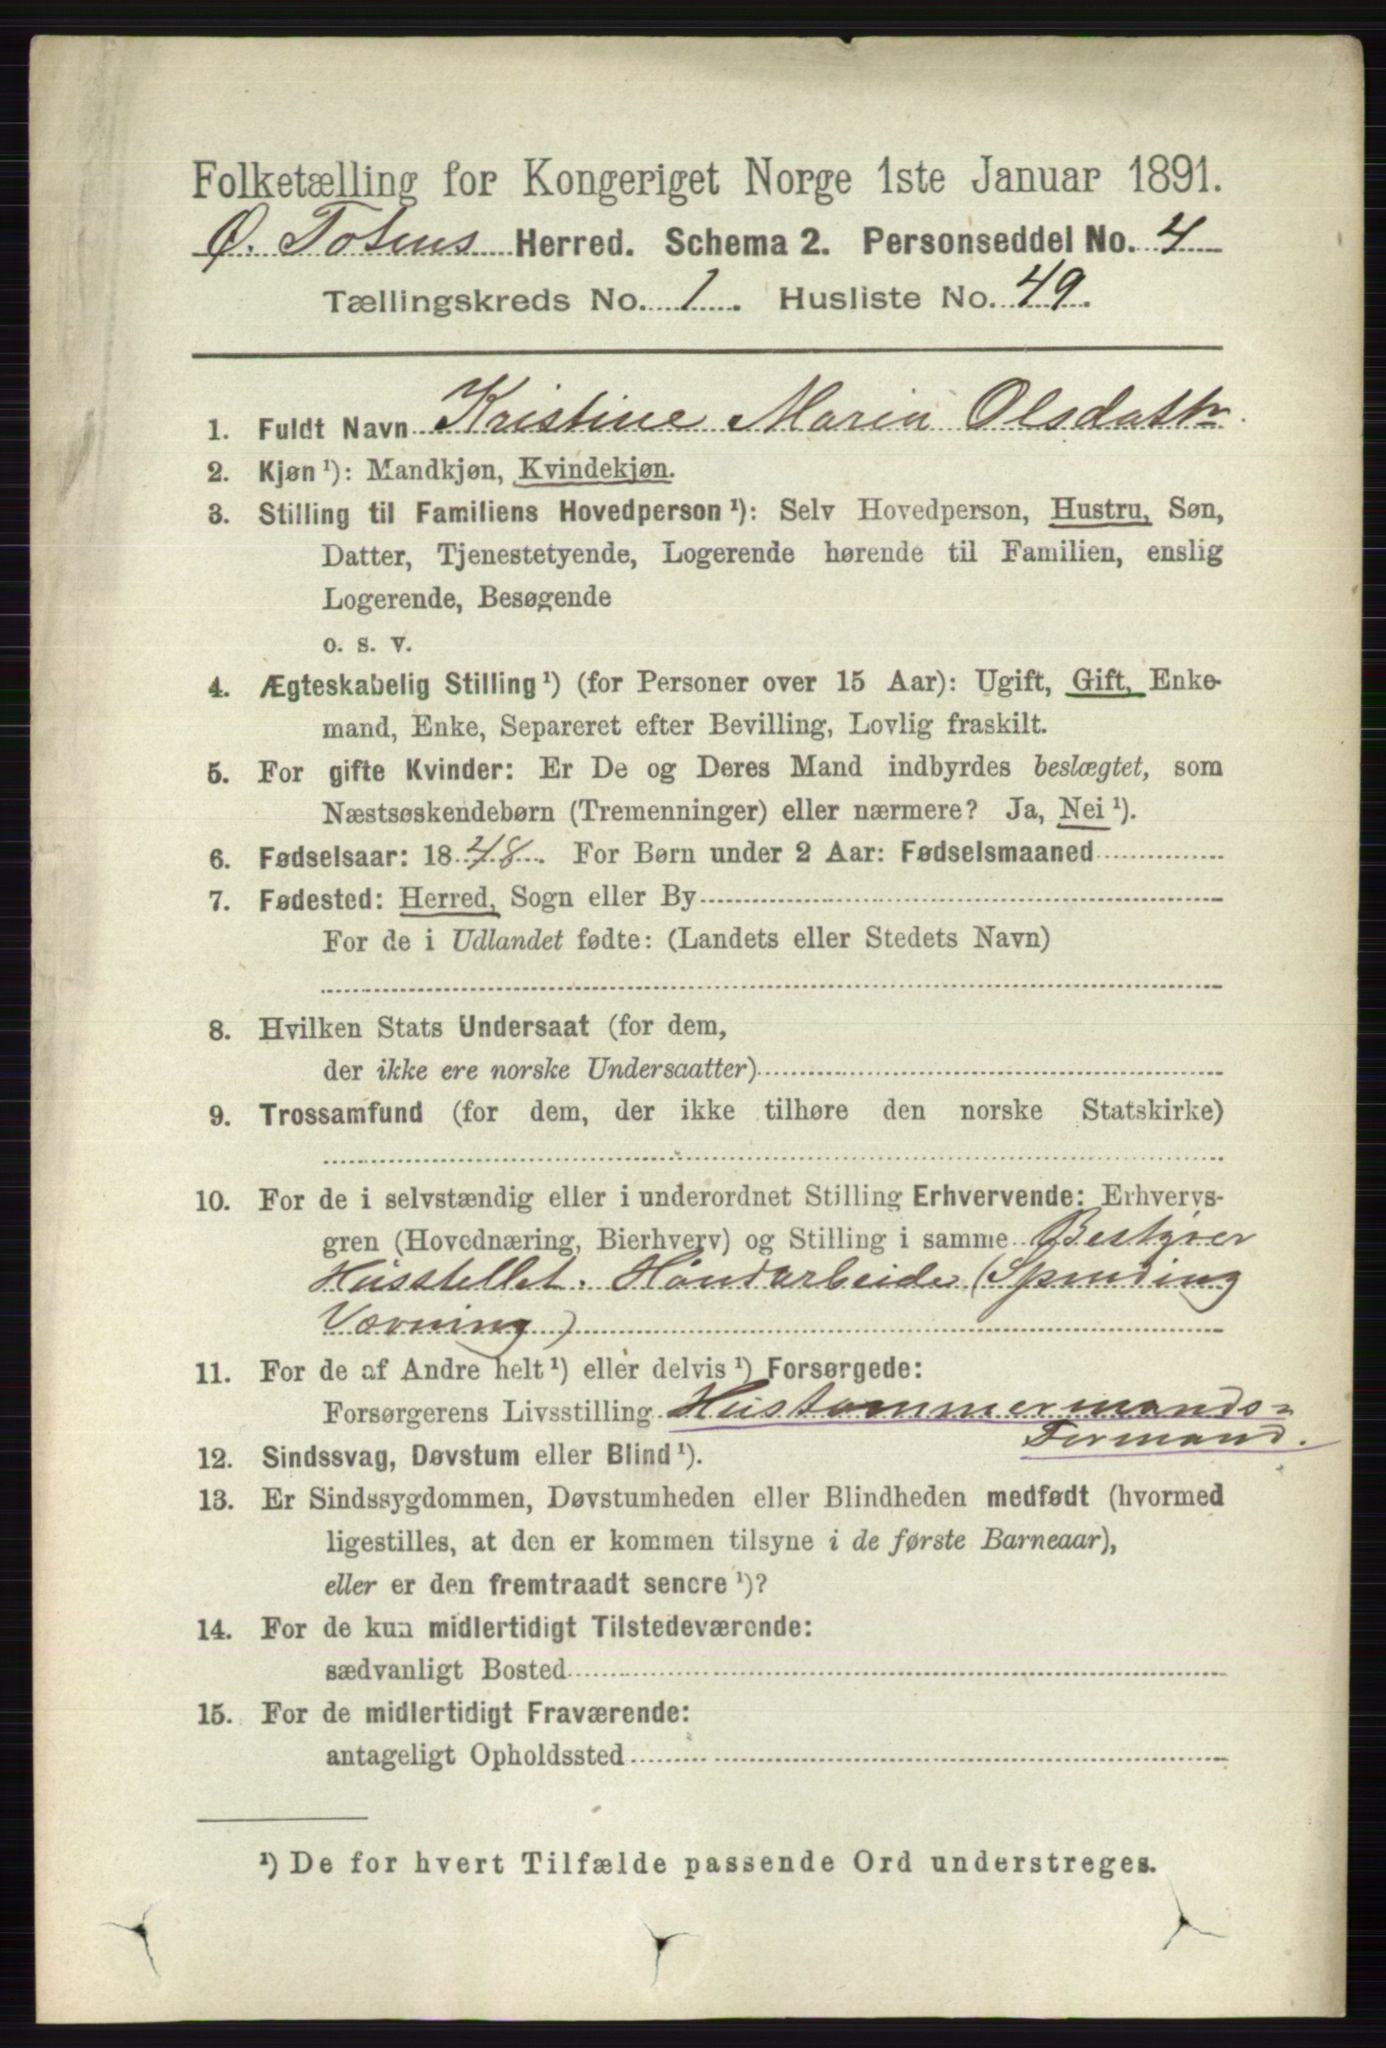 Folketælling for Kongeriget Norge 1ste Januar 1891.
Ø. Totens Herred. Schema 2. Personseddel No. 4
Tællingskreds No. 1. Husliste No. 49.
1. Fuldt Navn Kristine Maria Olsdattr.
2. Kjøn ¹): Mandkjøn, Kvindekjøn.
3. Stilling til Familiens Hovedperson ¹): Selv Hovedperson, Hustru, Søn,
Datter, Tjenestetyende, Logerende hørende til Familien, enslig
Logerende, Besøgende
o. s. v.
4. Ægteskabelig Stilling ¹) (for Personer over 15 Aar): Ugift, Gift, Enke-
mand, Enke, Separeret efter Bevilling, Lovlig fraskilt.
5. For gifte Kvinder: Er De og Deres Mand indbyrdes beslægtet, som
Næstsøskendebørn (Tremenninger) eller nærmere? Ja, Nei ¹).
6. Fødselsaar: 1848. For Børn under 2 Aar: Fødselsmaaned
7. Fødested: Herred, Sogn eller By
For de i Udlandet fødte: (Landets eller Stedets Navn)
8. Hvilken Stats Undersaat (for dem,
der ikke ere norske Undersaatter)
9. Trossamfund (for dem, der ikke tilhøre den norske Statskirke)
10. For de i selvstændig eller i underordnet Stilling Erhvervende: Erhvervs-
gren (Hovednæring, Bierhverv) og Stilling i samme Bestyrer
Husstellet. Håndarbeide (Spinding
Vævning)
11. For de af Andre helt ¹) eller delvis ¹) Forsørgede:
Forsørgerens Livsstilling Hustømmermands-
Formand.
12. Sindssvag, Døvstum eller Blind ¹).
13. Er Sindssygdommen, Døvstumheden eller Blindheden medfødt (hvormed
ligestilles, at den er kommen tilsyne i de første Barneaar),
eller er den fremtraadt senere ¹)?
14. For de kun midlertidigt Tilstedeværende:
sædvanligt Bosted
15. For de midlertidigt Fraværende:
antageligt Opholdssted
¹) De for hvert Tilfælde passende Ord understreges.